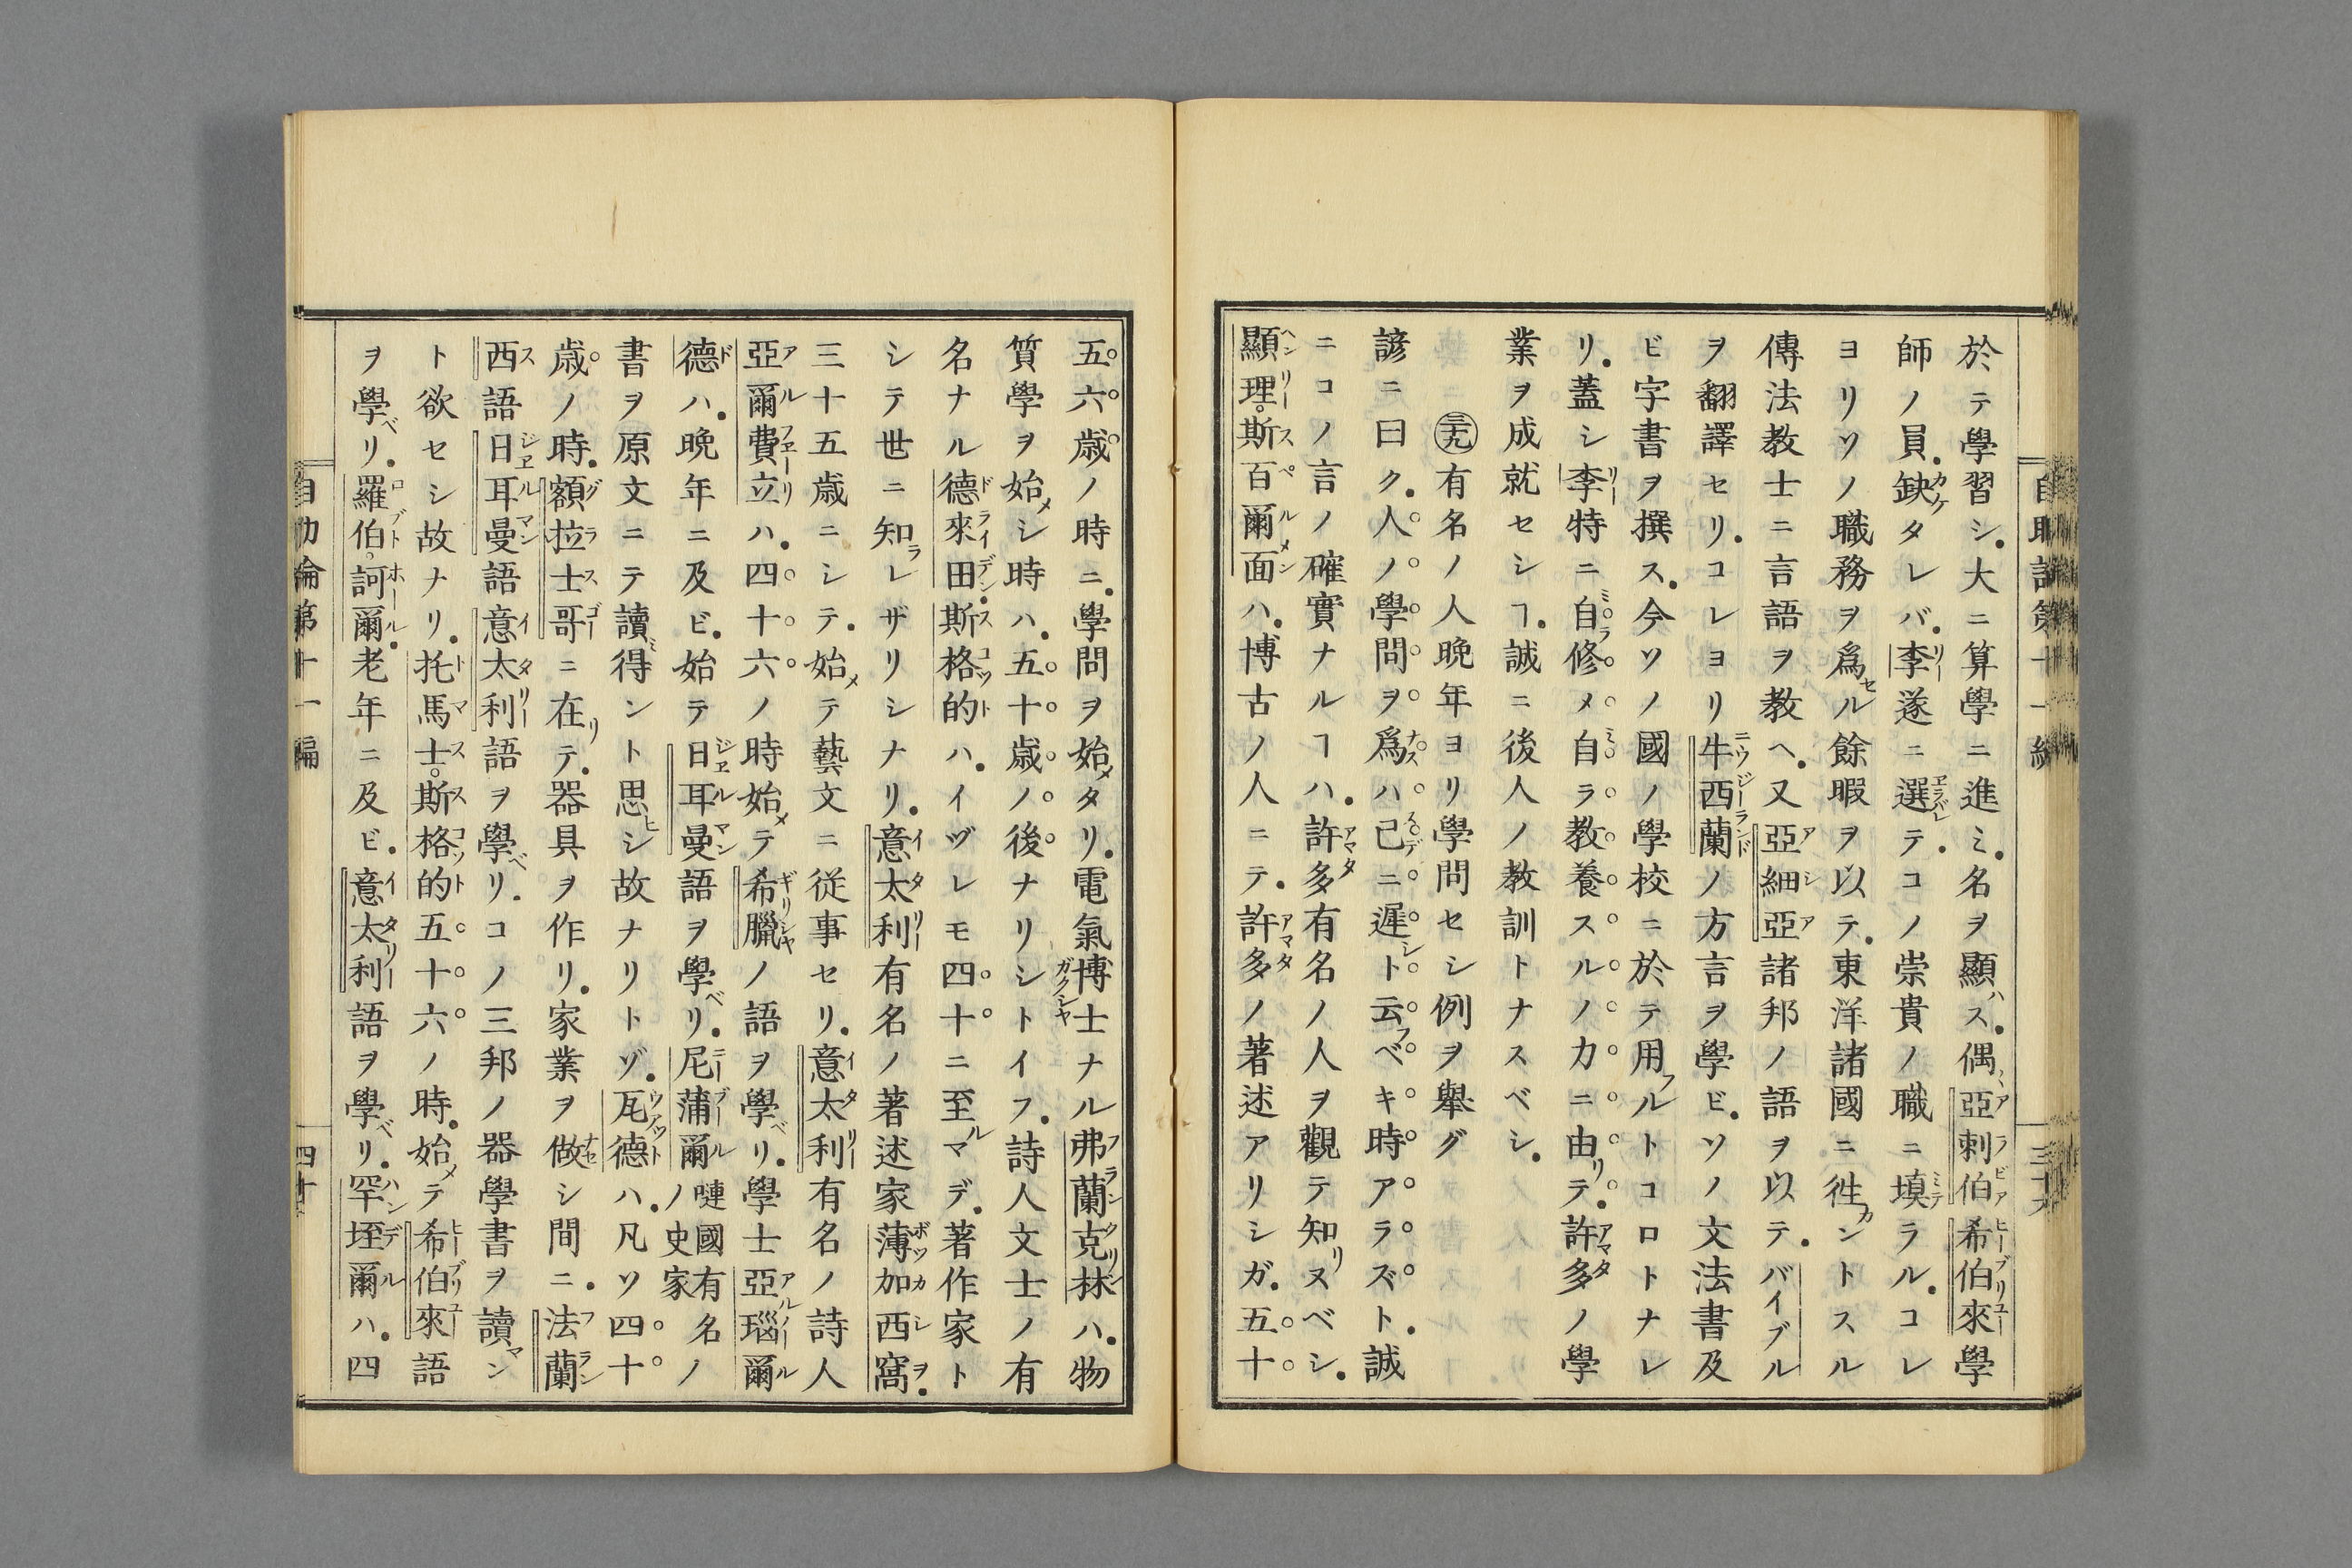 於テ學習シ大ニ算學ニ進ミ名ヲ顯ハス偶〻亞剌伯希伯來學
師ノ員缺タレバ李遂ニ選テコノ崇貴ノ職ニ塡ラルコレ
ヨリソノ職務ヲ爲セル餘暇ヲ以テ東洋諸國ニ徃カントスル
傳法教士ニ言語ヲ教ヘ又亞細亞諸邦ノ語ヲ以テバイブル
ヲ翻譯セリコレヨリ牛西蘭ノ方言ヲ學ビソノ文法書及
ビ字書ヲ撰ス今ソノ國ノ學校ニ於テ用フルトコロトナレ
リ蓋シ李特ニ自ラ修メ自ラ教養スルノ力ニ由リテ許多ノ學
業ヲ成就セシヿ誠ニ後人ノ教訓トナスベシ
㊴有名ノ人晩年ヨリ學問セシ例ヲ舉グ
諺ニ曰ク人ノ學問ヲ爲スハ已ニ遲シト云フベキ時アラズト誠
ニコノ言ノ確實ナルヿハ許多有名ノ人ヲ觀テ知リヌベシ
顯理斯百爾面ハ博古ノ人ニテ許多ノ著述アリシガ五十
五六歳ノ時ニ學問ヲ始メタリ電氣博士ナル弗蘭克林ハ物
質學ヲ始メシ時ハ五十歳ノ後ナリシトイフ詩人文士ノ有
名ナル德來田斯格的ハイヅレモ四十ニ至ルマデ著作家ト
シテ世ニ知ラレザリシナリ意太利有名ノ著述家薄加西窩
三十五歳ニシテ始メテ藝文ニ従事セリ意太利有名ノ詩人
亞爾費立ハ四十六ノ時始メテ希臘ノ語ヲ學ベリ學士亞瑙爾
德ハ晩年ニ及ビ始テ日耳曼語ヲ學ベリ尼蒲爾嗹國有名ノノ史家
書ヲ原文ニテ讀ミ得ント思ヒシ故ナリトゾ瓦德ハ凡ソ四十
歳ノ時額拉士哥ニ在リテ器具ヲ作リ家業ヲ做セシ間ニ法蘭
西語日耳曼語意太利語ヲ學ベリコノ三邦ノ器學書ヲ讀マン
ト欲セシ故ナリ托馬士斯格的五十六ノ時始メテ希伯來語
ヲ學ベリ羅伯訶爾老年ニ及ビ意太利語ヲ學ベリ罕垤爾ハ四
自助論第十一編
四十